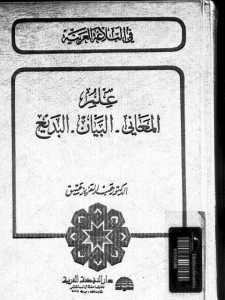 في البلاغة العربية
علم
المعاني - البيان - البديع
الدكتور عبد العزيز عتيق
دار النهضة العربية